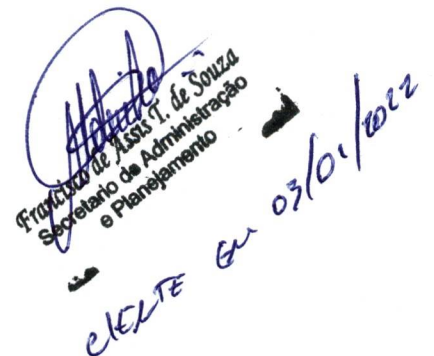 Francisco de Assis T. de Souza
Secretario de Administração
e Planejamento
CIENTE EM 03/01/2022